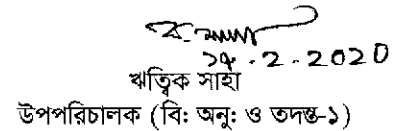 .2.2020
ঋত্বিক সাহা
উপপরিচালক (বি: অনু: ও তদন্ত-১)